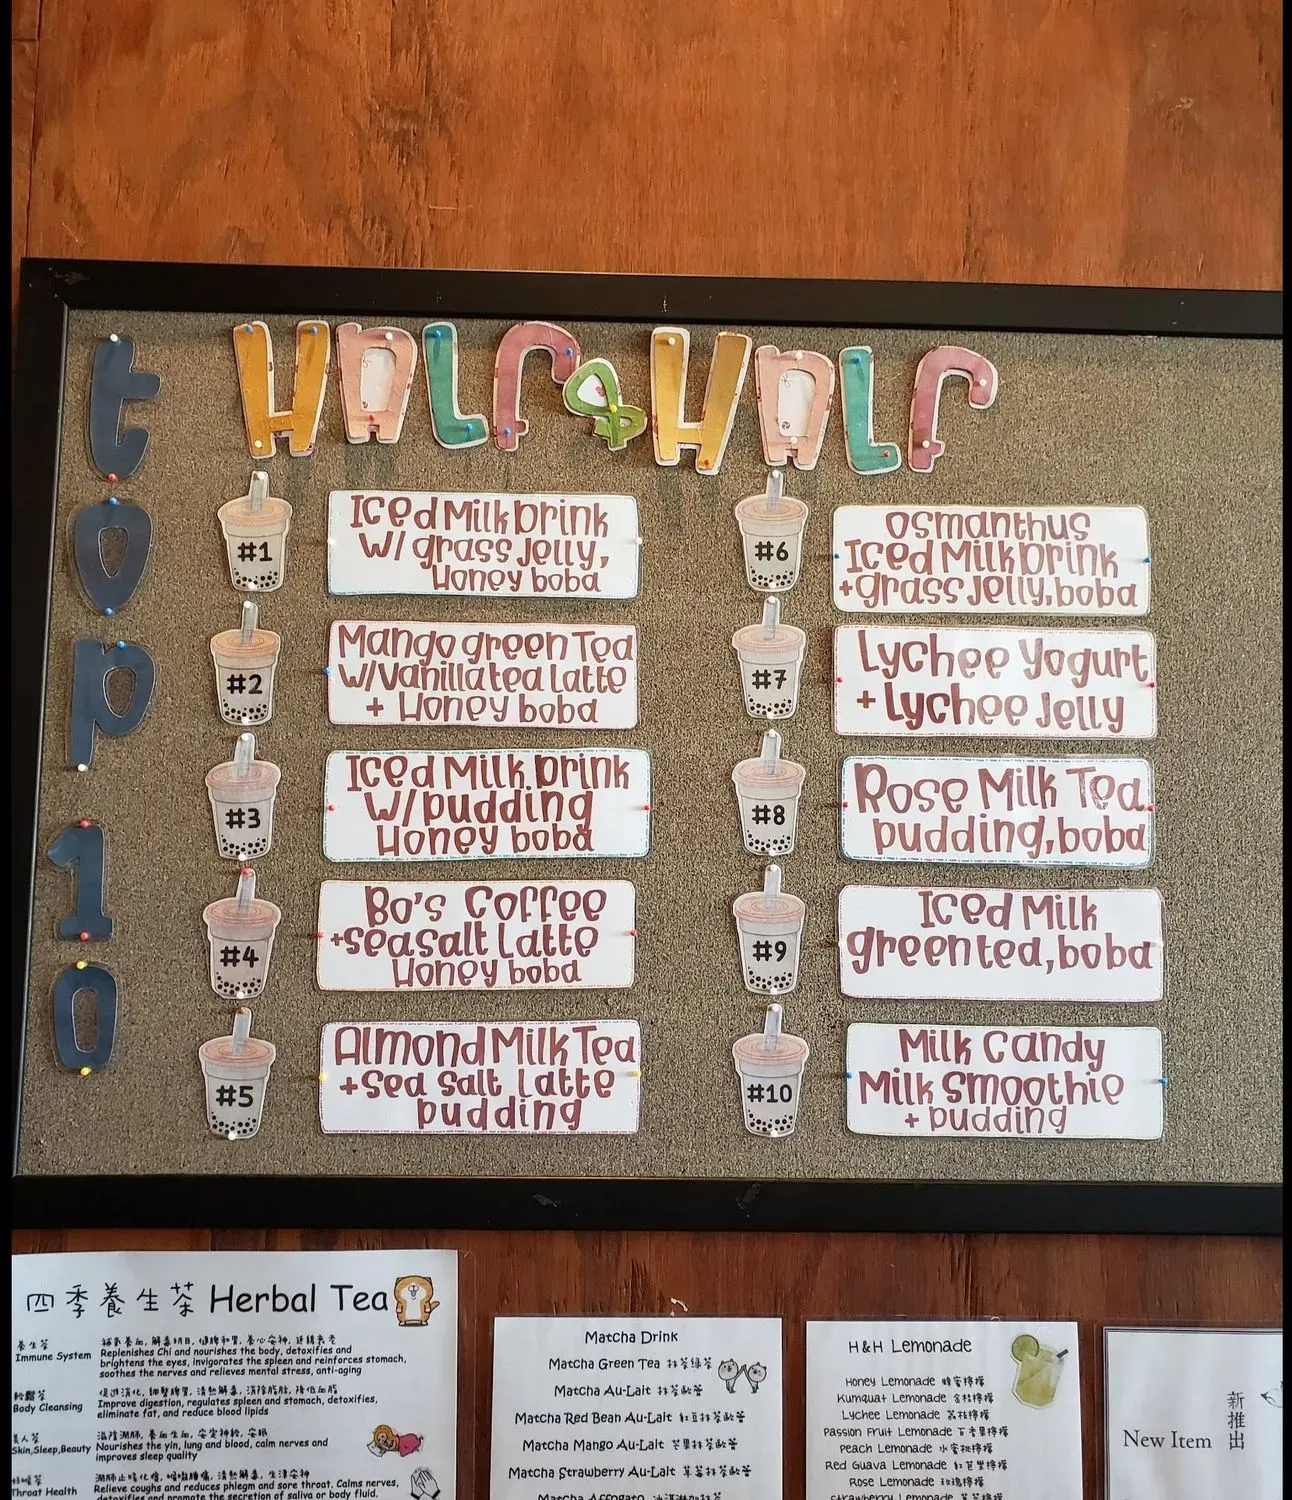 top 10
Half & Half
#1
Iced Milk Drink
w/ grass jelly,
Honey boba
#2
Mango green Tea
w/ Vanilla tea latte
+ Honey boba
#3
Iced Milk Drink
w/ pudding
Honey boba
#4
Bo's Coffee
+ sea salt Latte
Honey boba
#5
Almond Milk Tea
+ Sea Salt Latte
pudding
#6
Osmanthus
Iced Milk Drink
+ grass Jelly, boba
#7
Lychee Yogurt
+ Lychee Jelly
#8
Rose Milk Tea
pudding, boba
#9
Iced Milk
green tea, boba
#10
Milk Candy
Milk Smoothie
+ pudding
四季養生茶 Herbal Tea
養生茶
Immune System
補氣養血, 解毒明目, 健脾和胃, 養心安神, 延緩衰老
Replenishes Chi and nourishes the body, detoxifies and
brightens the eyes, invigorates the spleen and reinforces stomach,
soothes the nerves and relieves mental stress, anti-aging
Body Cleansing
促進消化, 調整脾胃, 清熱解毒, 消除脂肪, 降低血脂
Improve digestion, regulates spleen and stomach, detoxifies,
eliminate fat, and reduce blood lipids
美人茶
Skin,Sleep,Beauty
滋陰潤肺, 養血生血, 安定神經, 安眠
Nourishes the yin, lung and blood, calm nerves and
improves sleep quality
Throat Health
潤肺止咳化痰, 喉嚨腫痛, 清熱解毒, 生津安神
Relieve coughs and reduces phlegm and sore throat. Calms nerves,
detoxifies and promote the secretion of saliva or body fluid.
Matcha Drink
Matcha Green Tea 抹茶綠茶
Matcha Au-Lait 抹茶歐蕾
Matcha Red Bean Au-Lait 紅豆抹茶歐蕾
Matcha Mango Au-Lait 芒果抹茶歐蕾
Matcha Strawberry Au-Lait 草莓抹茶歐蕾
Matcha Affogato 冰淇淋抹茶
H&H Lemonade
Honey Lemonade 蜂蜜檸檬
Kumquat Lemonade 金桔檸檬
Lychee Lemonade 荔枝檸檬
Passion Fruit Lemonade 百香果檸檬
Peach Lemonade 水蜜桃檸檬
Red Guava Lemonade 紅芭樂檸檬
Rose Lemonade 玫瑰檸檬
Strawberry Lemonade 草莓檸檬
New Item 新推出